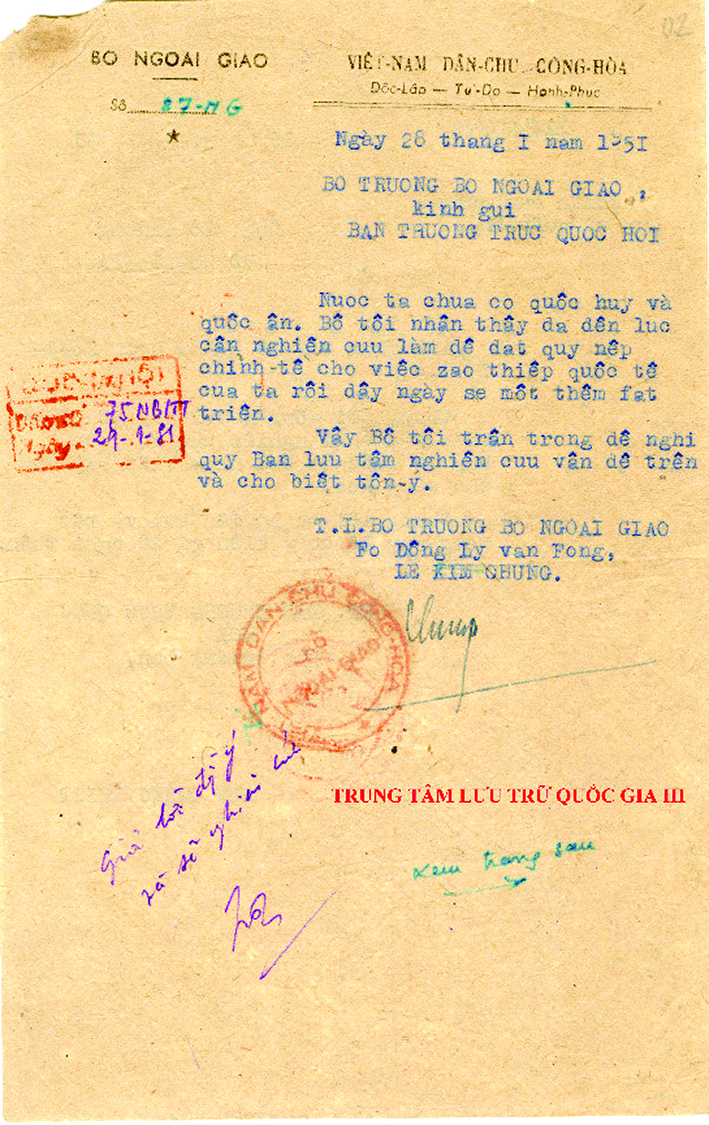 02
BO NGOAI GIAO
Số 27-NG
VIỆT-NAM DÂN-CHU CỘNG-HÒA
Dôc-Lâp — Tư-Do — Hanh-Phuc
Ngày 28 thang I nam 1951
BO TRUONG BO NGOAI GIAO,
kinh gui
BAN THUONG TRUC QUOC HOI
Nuoc ta chua co quôc huy và
quôc ân. Bô tôi nhân thây da dên luc
cân nghiên cuu làm dê dat quy nêp
chinh-tê cho viêc zao thiêp quôc tê
cua ta rôi dây ngày se môt thêm fat
triên.
Vây Bô tôi trân trong dê nghi
quy Ban luu tâm nghiên cuu vân dê trên
và cho biêt tôn-ý.
QUOC HOI
75NB/TT
Ngày 29-1-51
T.L.BO TRUONG BO NGOAI GIAO
Fo Dông Ly van Fong,
LE KIM CHUNG.
Chung
VIỆT NAM DÂN CHỦ CỘNG HÒA
BỘ
NGOẠI GIAO
TRUNG TÂM LƯU TRỮ QUỐC GIA III
đã đồng ý
và sẽ nghiên cứu
xem trang sau